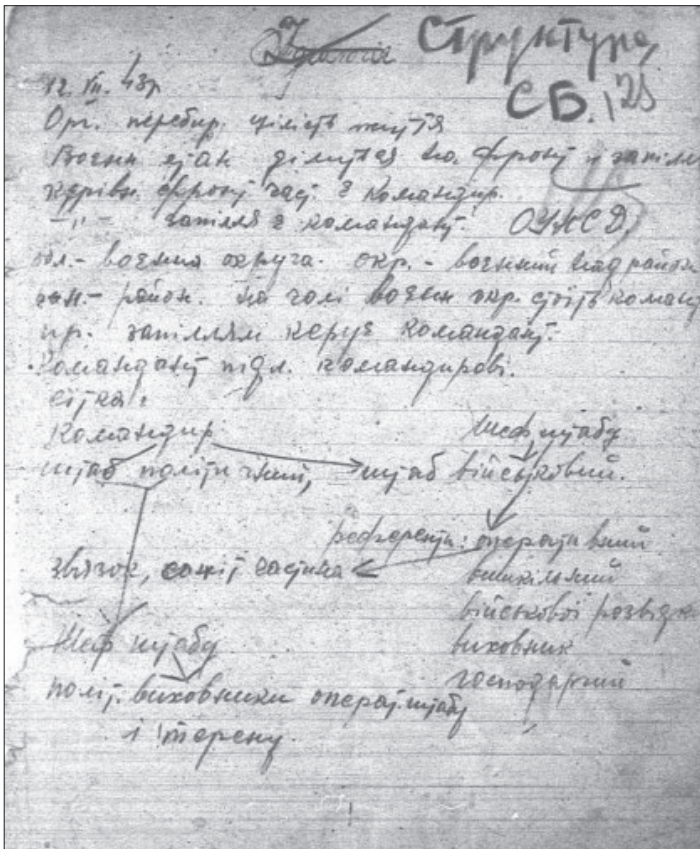 Структура
СБ.
12. VII. 43р
Орг. перебир. цілість життя
Воєнн. стан ділиться на фронт і запілля
керівн. фронт. част. є командир.
–„– запілля є комендант.
обл.- воєнна округа. окр. - воєнний надрайон
рай.- район. На чолі воєн. окр. стоїть команд
ир. запіллям керує комендант.
Комендант підл. командирові.
сітка:
Командир
Шеф штабу
штаб політичний, штаб військовий.
референти: оперативний
звязок, частина
вишкільний
військової розвідки
Шеф штабу
виховник
господарчий
політ. виховники операт. штабу
і терену.